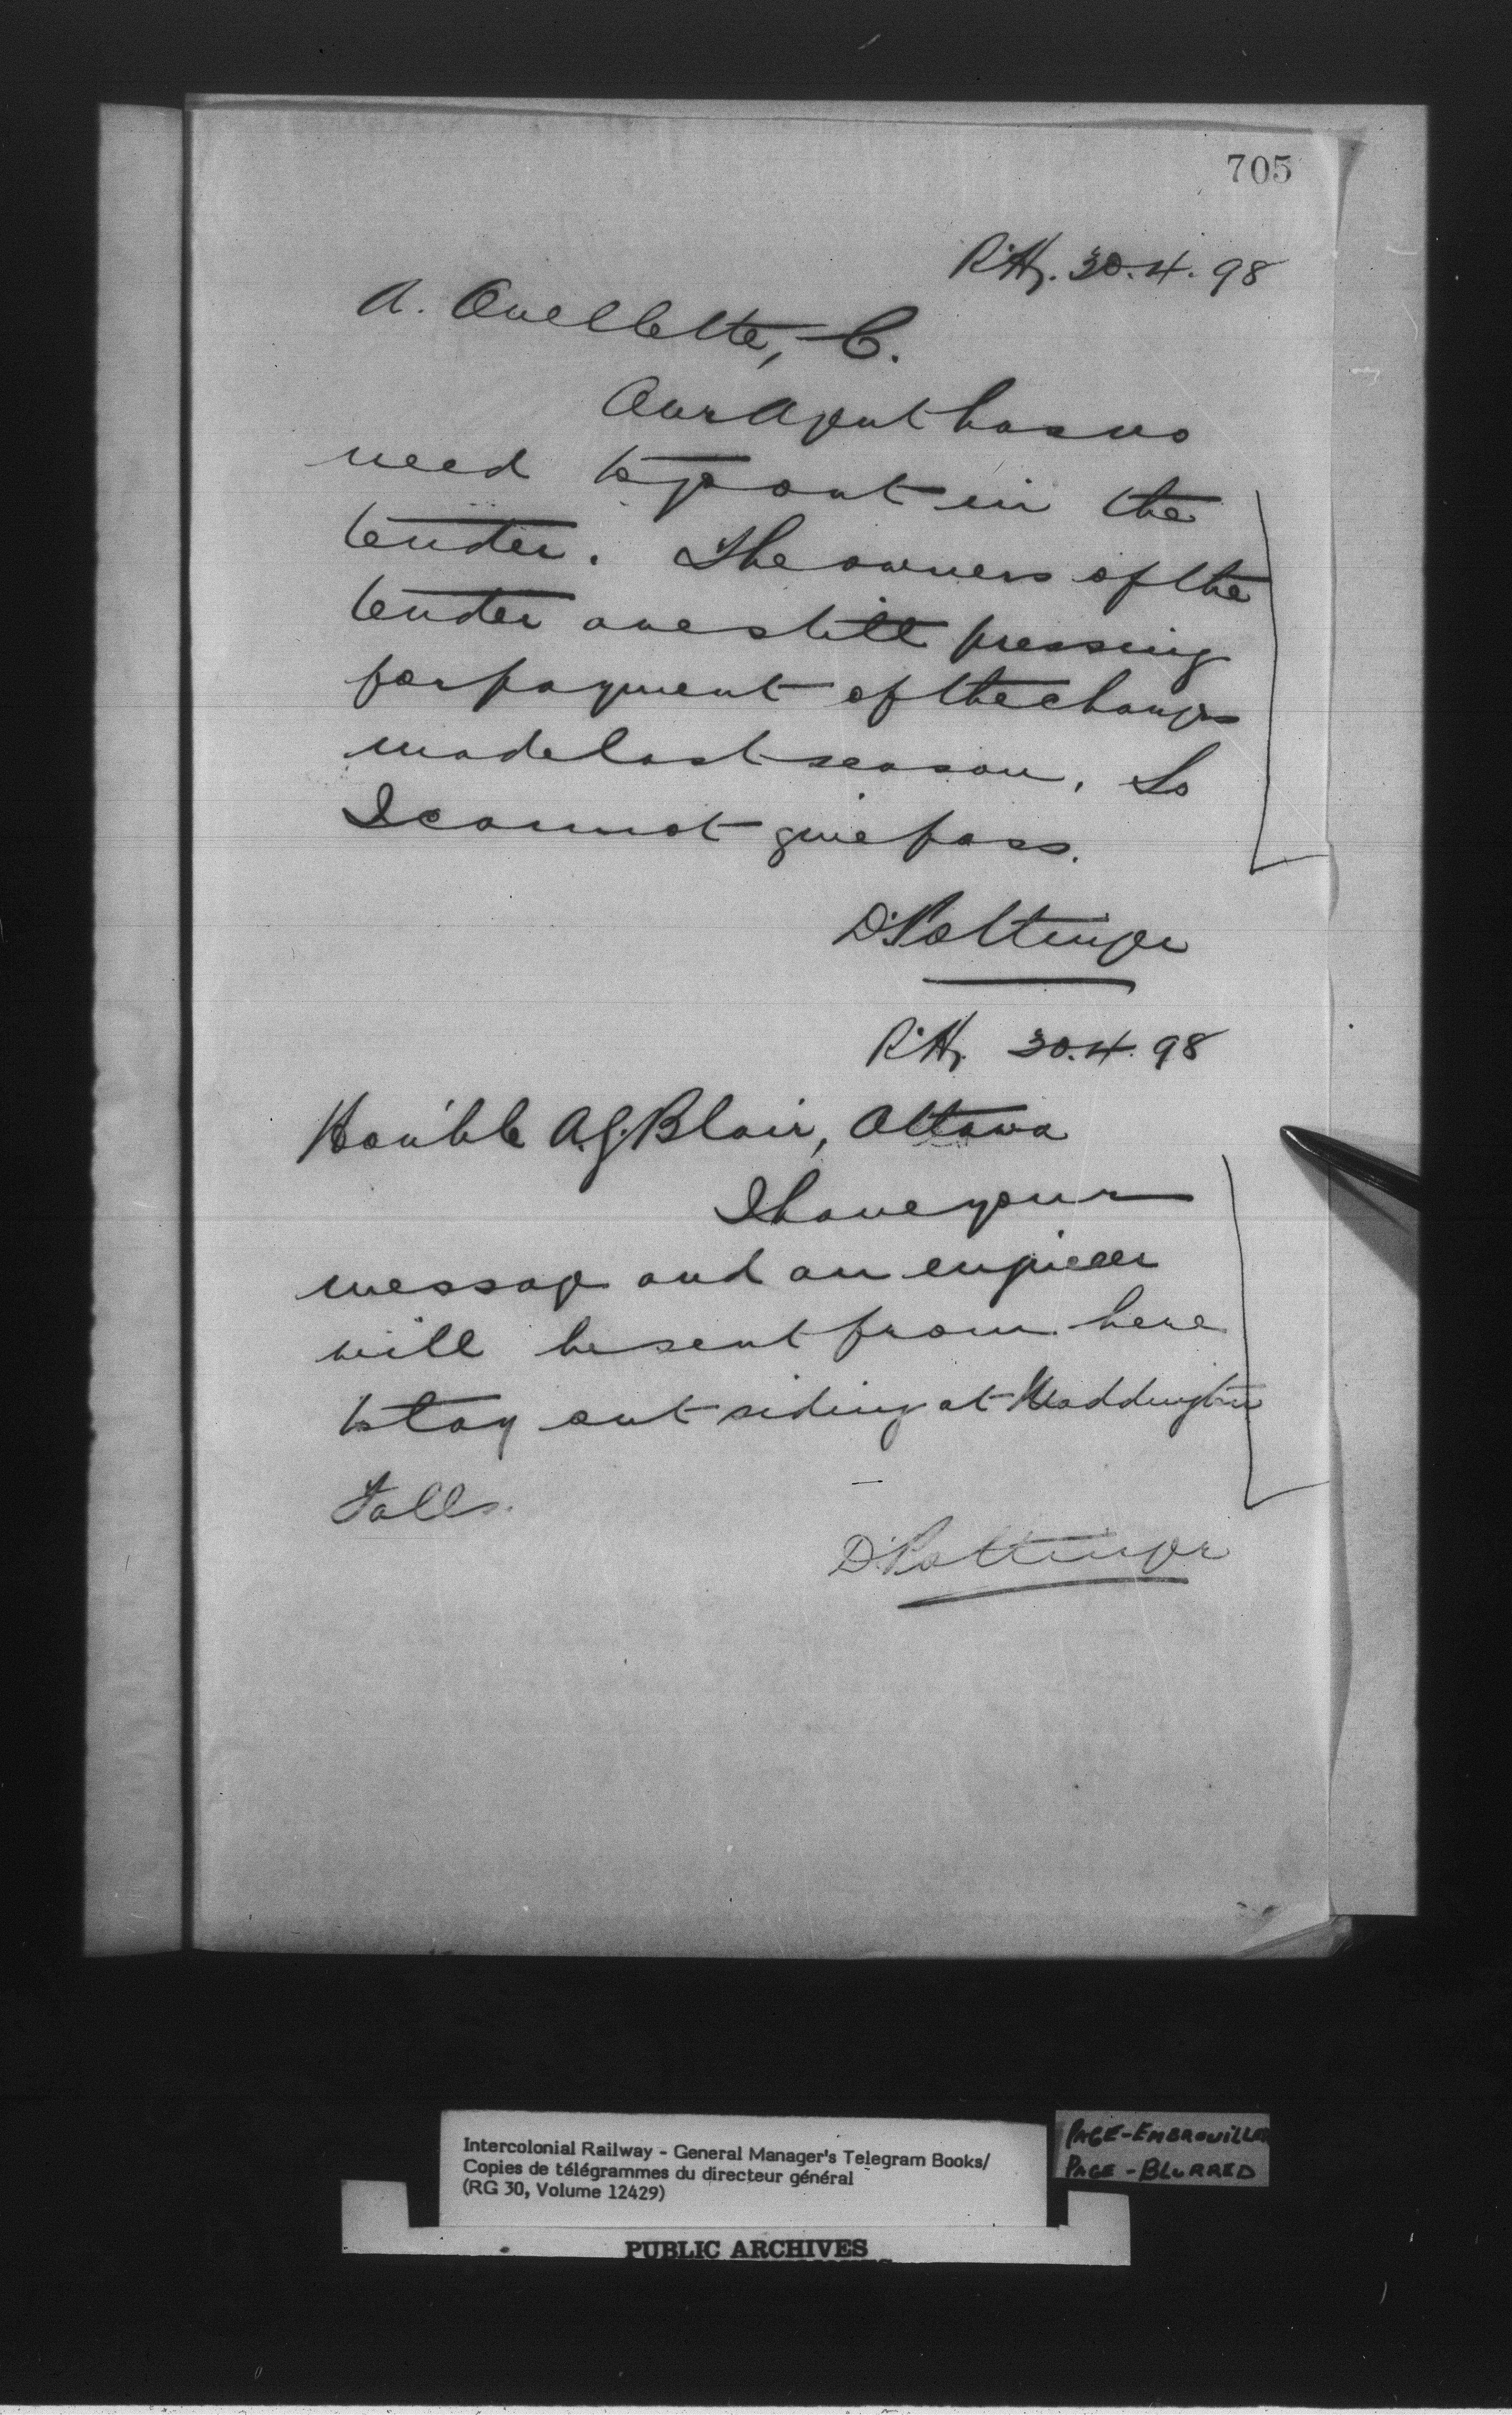 705
R'Hy. 30.4.98
A. Ouellette, C.
Our Agent has no
need to go out in the
tender. The owners of the
tender are still pressing
for payment of the charges
made last season. So
I cannot give pass.
D. Pottinger
R'Hy. 30.4.98
Hon'ble A.G. Blair, Ottawa
I have your
message and an engineer
will be sent from here
to lay out siding at Waddington
Falls.
D. Pottinger
Intercolonial Railway - General Manager's Telegram Books/
Copies de télégrammes du directeur général
(RG 30, Volume 12429)
PAGE - EMBROUILLER
PAGE - BLURRED
PUBLIC ARCHIVES